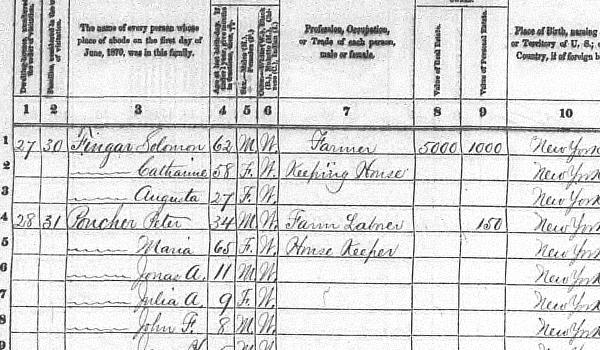 Dwelling-houses, numbered in the order of visitation.
Families, numbered in the order of visitation.
The name of every person whose place of abode on the first day of June, 1870, was in this family.
Profession, Occupation, or Trade of each person, male or female.
Value of Real Estate.
Value of Personal Estate.
Place of Birth, naming
or Territory of U. S.; o
Country, if of foreign b
1 2 3 4 5 6 7 8 9 10
1 27 30 Fingar Solomon 62 M. W. Farmer 5000 1000 New York
2 Catharine 58 F. W. Keeping House New York
3 Augusta 27 F. W. New York
4 28 31 Poucher Peter 34 M. W. Farm Labrer 150 New York
5 Maria 65 F. W. House Keeper New York
6 Jonas A. 11 M. W. New York
7 Julia A. 9 F. W. New York
8 John F. 8 M. W. New York
9